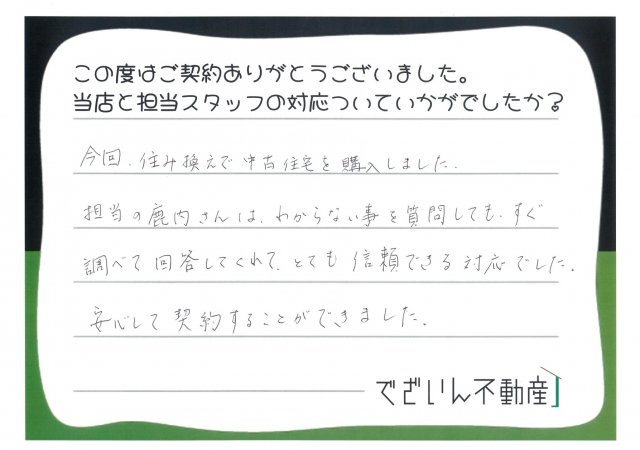 この度はご契約ありがとうございました。
当店と担当スタッフの対応ついていかがでしたか？
今回、住み換えで中古住宅を購入しました。
担当の鹿内さんは、わからない事を質問しても、すぐ
調べて回答してくれて、とても信頼できる対応でした。
安心して契約することができました。
でざいん不動産